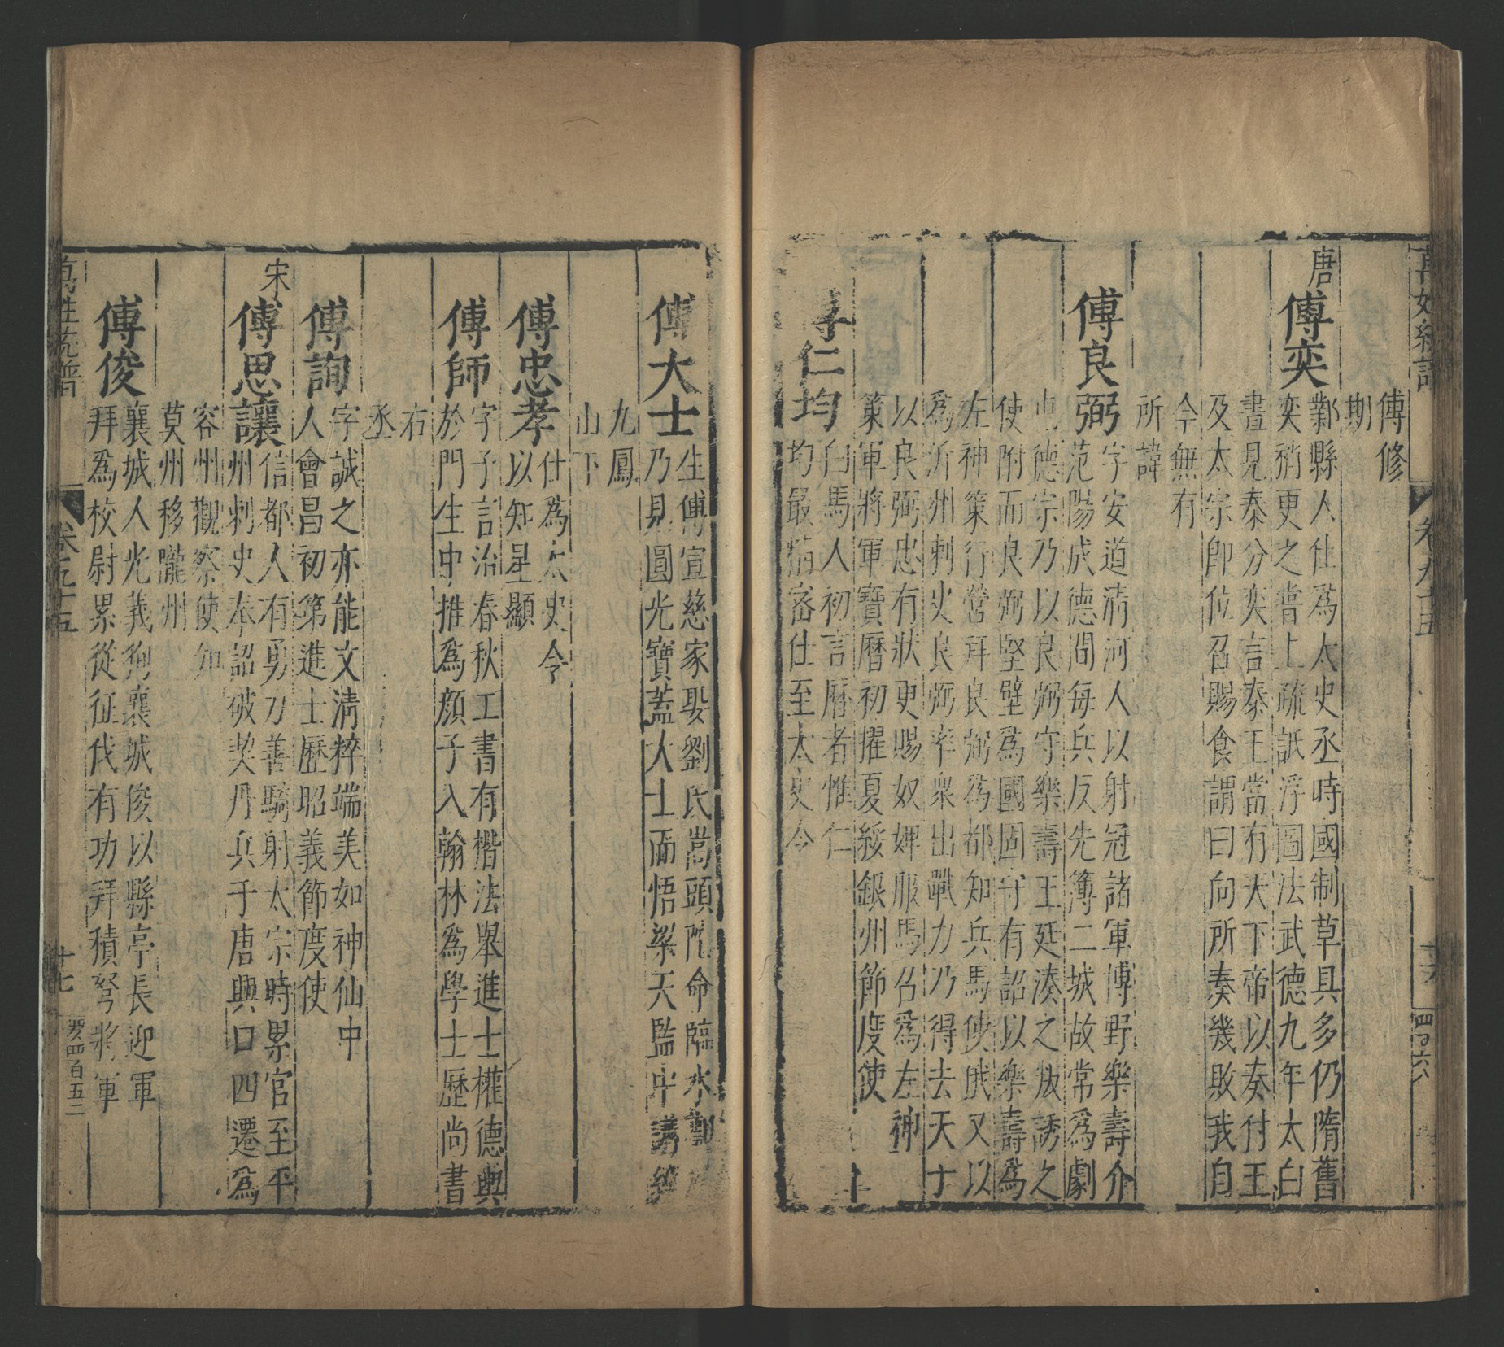 萬姓統譜
卷九十五
十六
傅修
期
唐
傅奕
鄴縣人仕爲太史丞時國制草具多仍隋舊
奕稍更之嘗上疏詆浮圖法武德九年太白
晝見秦分奕言秦王當有天下帝以奏付王
及太宗卽位召賜食謂曰向所奏幾敗我自
今無有
所諱
傅良弼
字安道淸河人以射冠諸軍博野樂壽介
范陽成德間每兵反先簿二城故常爲劇
屯德宗乃以良弼守樂壽王廷湊之叛誘之
使附而良弼堅壁爲國固守有詔以樂壽爲
左神策行營拜良弼爲都知兵馬使旣又以
爲沂州刺史良弼率衆出戰力乃得去天子
以良弼忠有狀更賜奴婢服馬召爲左神
策軍將軍寶曆初擢夏綏銀州節度使
傅仁均
白馬人初言曆者惟仁
均最精密仕至太史令
傅大士
生傅宣慈家娶劉氏嵩頭陀命臨水
乃見圓光寶蓋大士而悟梁天監中講經
九鳳
山下
傅忠孝
仕爲太史令
以知星顯
傅師
字子言治春秋工書有楷法舉進士權德輿
於門生中推爲顏子入翰林爲學士歷尚書
右
丞
傅詢
字誠之亦能文淸粹端美如神仙中
人會昌初第進士歷昭義節度使
宋
傅思讓
信都人有勇力善騎射太宗時累官至平
州刺史奉詔破契丹兵于唐興口四遷爲
容州觀察使知
莫州移隴州
傅俊
襄城人光義狥襄城俊以縣亭長迎軍
拜爲校尉累從征伐有功拜積弩將軍
萬姓統譜
卷九十五
十七